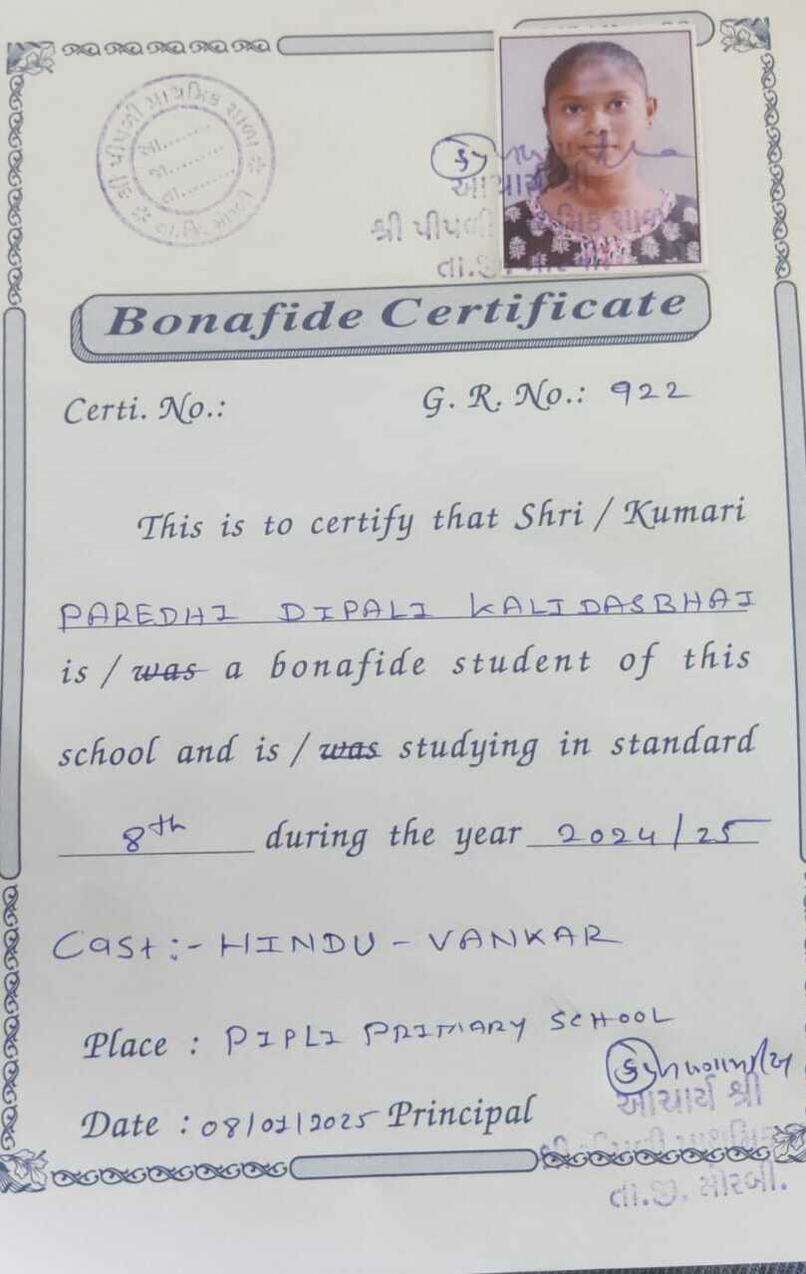 શ્રી પીપળી પ્રાથમિક શાળા
તા.જિ. મોરબી
આચાર્ય શ્રી
શ્રી પીપળી
તા.જી.
Bonafide Certificate
Certi. No.: G. R. No.: 922
This is to certify that Shri / Kumari
PAREDHI DIPALI KALIDASBHAI
is / was a bonafide student of this
school and is / was studying in standard
8th during the year 2024/25
Cast:- HINDU - VANKAR
Place : PIPLI PRIMARY SCHOOL
Date : 08/01/2025 Principal
આચાર્ય શ્રી
શ્રી પીપળી પ્રાથમિક
તા.જી. મોરબી.